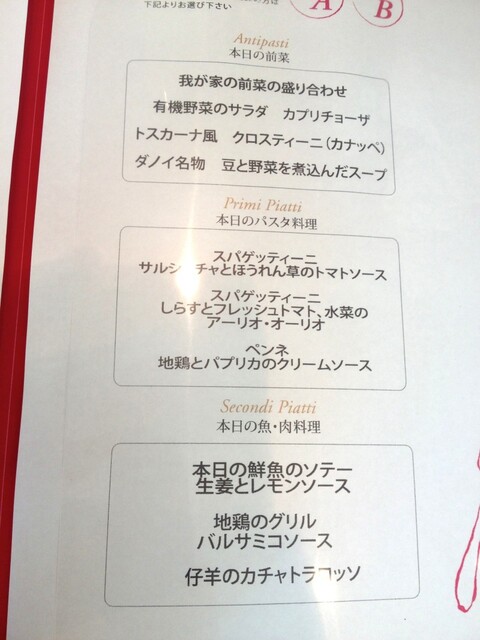 下記よりお選び下さい
A B
Antipasti
本日の前菜
我が家の前菜の盛り合わせ
有機野菜のサラダ カプリチョーザ
トスカーナ風 クロスティーニ(カナッペ)
ダノイ名物 豆と野菜を煮込んだスープ
Primi Piatti
本日のパスタ料理
スパゲッティーニ
サルシッチャとほうれん草のトマトソース
スパゲッティーニ
しらすとフレッシュトマト、水菜の
アーリオ・オーリオ
ペンネ
地鶏とパプリカのクリームソース
Secondi Piatti
本日の魚・肉料理
本日の鮮魚のソテー
生姜とレモンソース
地鶏のグリル
バルサミコソース
仔羊のカチャトラロッソ